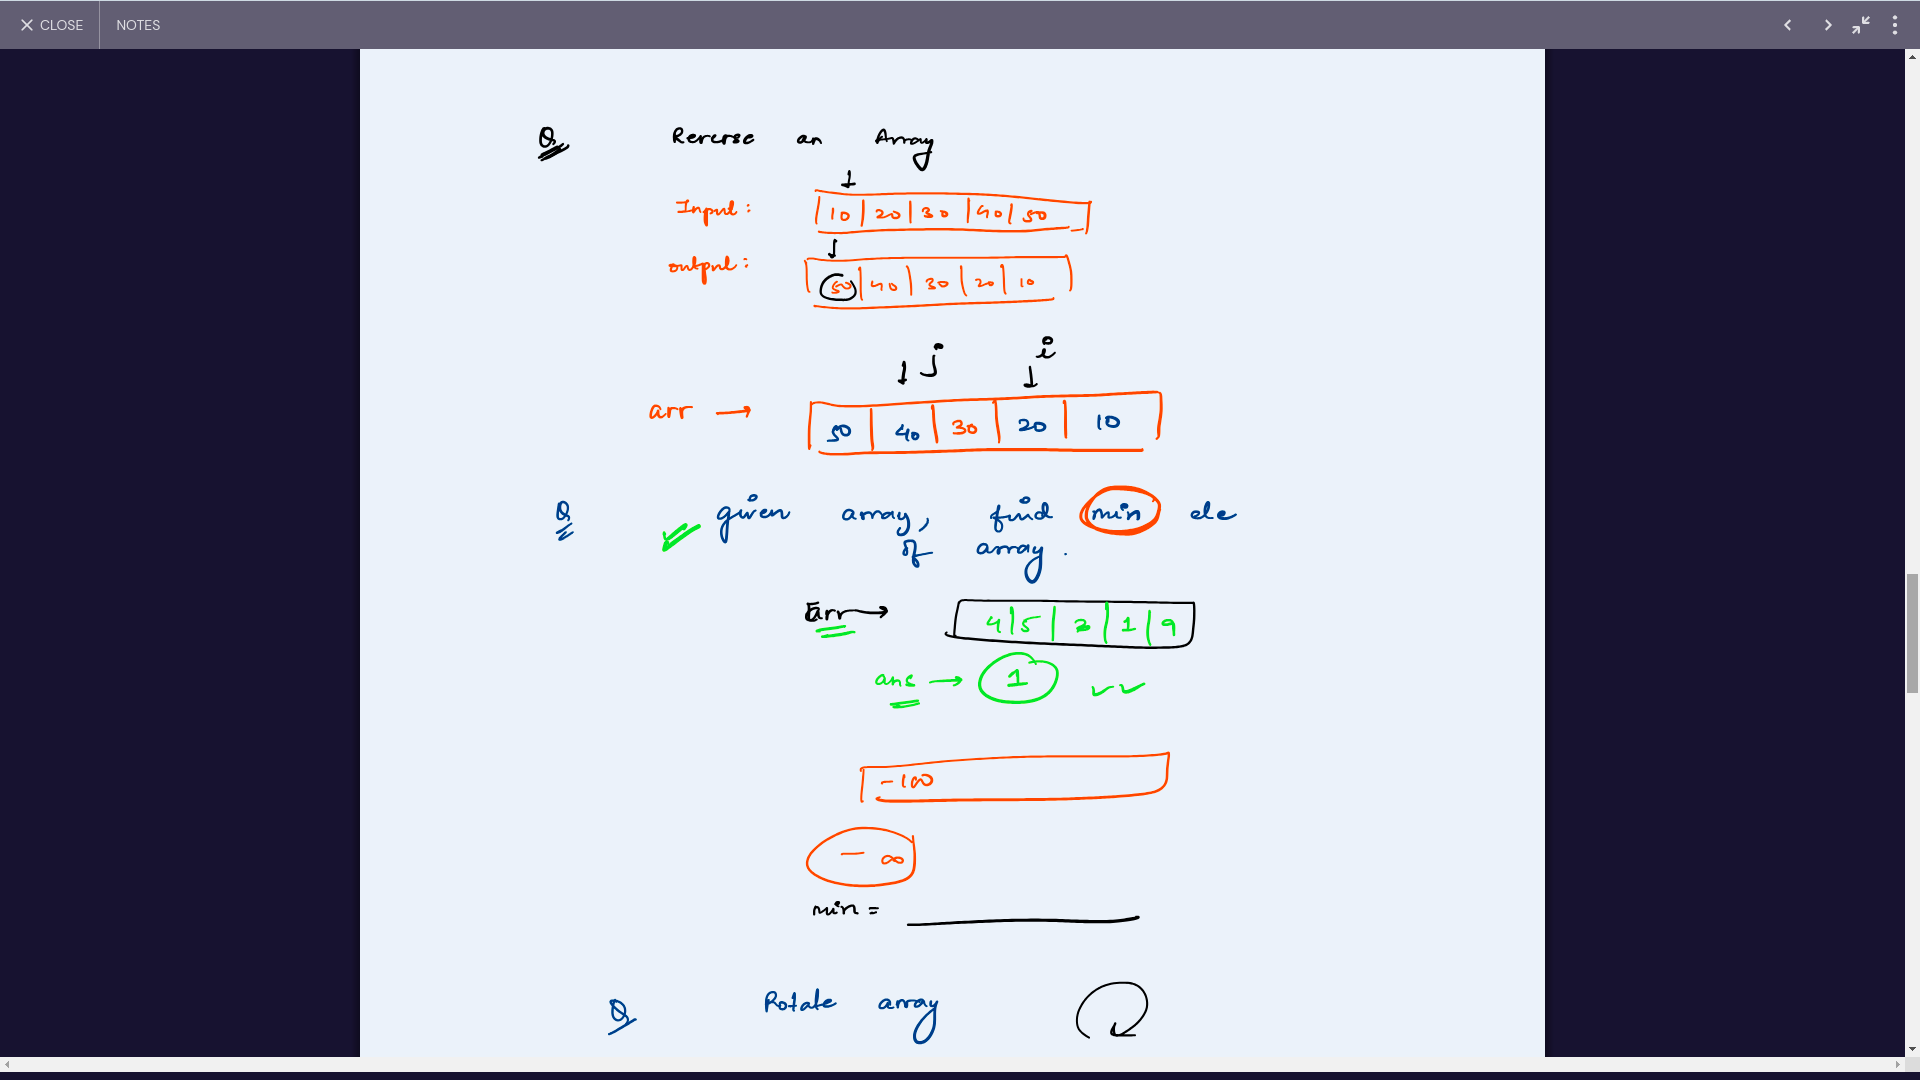 CLOSE NOTES
Q Reverse an Array
Input: 10 20 30 40 50
output: 50 40 30 20 10
j i
arr → 50 40 30 20 10
Q given array, find min ele
of array.
arr → 4 5 2 1 9
ans → 1
-100
- ∞
min =
Q Rotate array